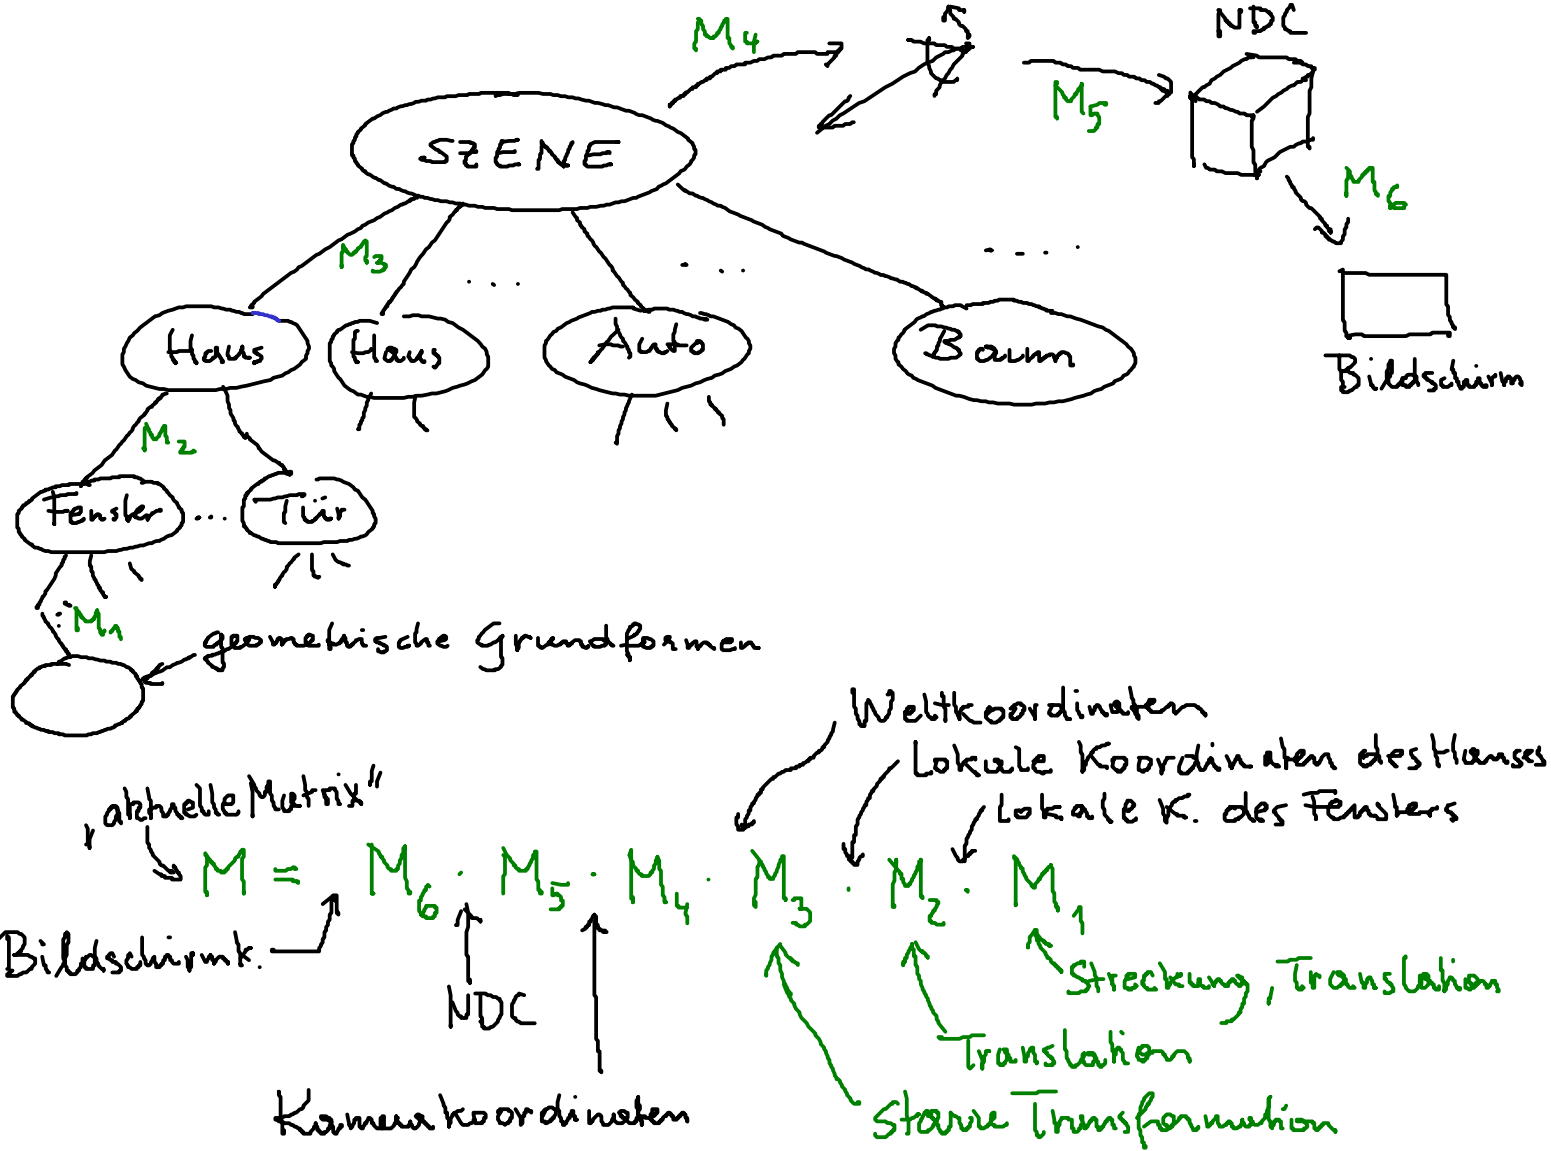 M4
NDC
M5
SZENE
M6
M3
. . .
. . .
. . . .
Haus
Haus
Auto
Baum
Bildschirm
M2
Fenster
...
Tür
M1
geometrische Grundformen
Weltkoordinaten
Lokale Koordinaten des Hauses
Lokale K. des Fensters
„aktuelle Matrix"
M = M6 · M5 · M4 · M3 · M2 · M1
Bildschirmk.
NDC
Streckung, Translation
Translation
Kamerakoordinaten
Starre Transformation